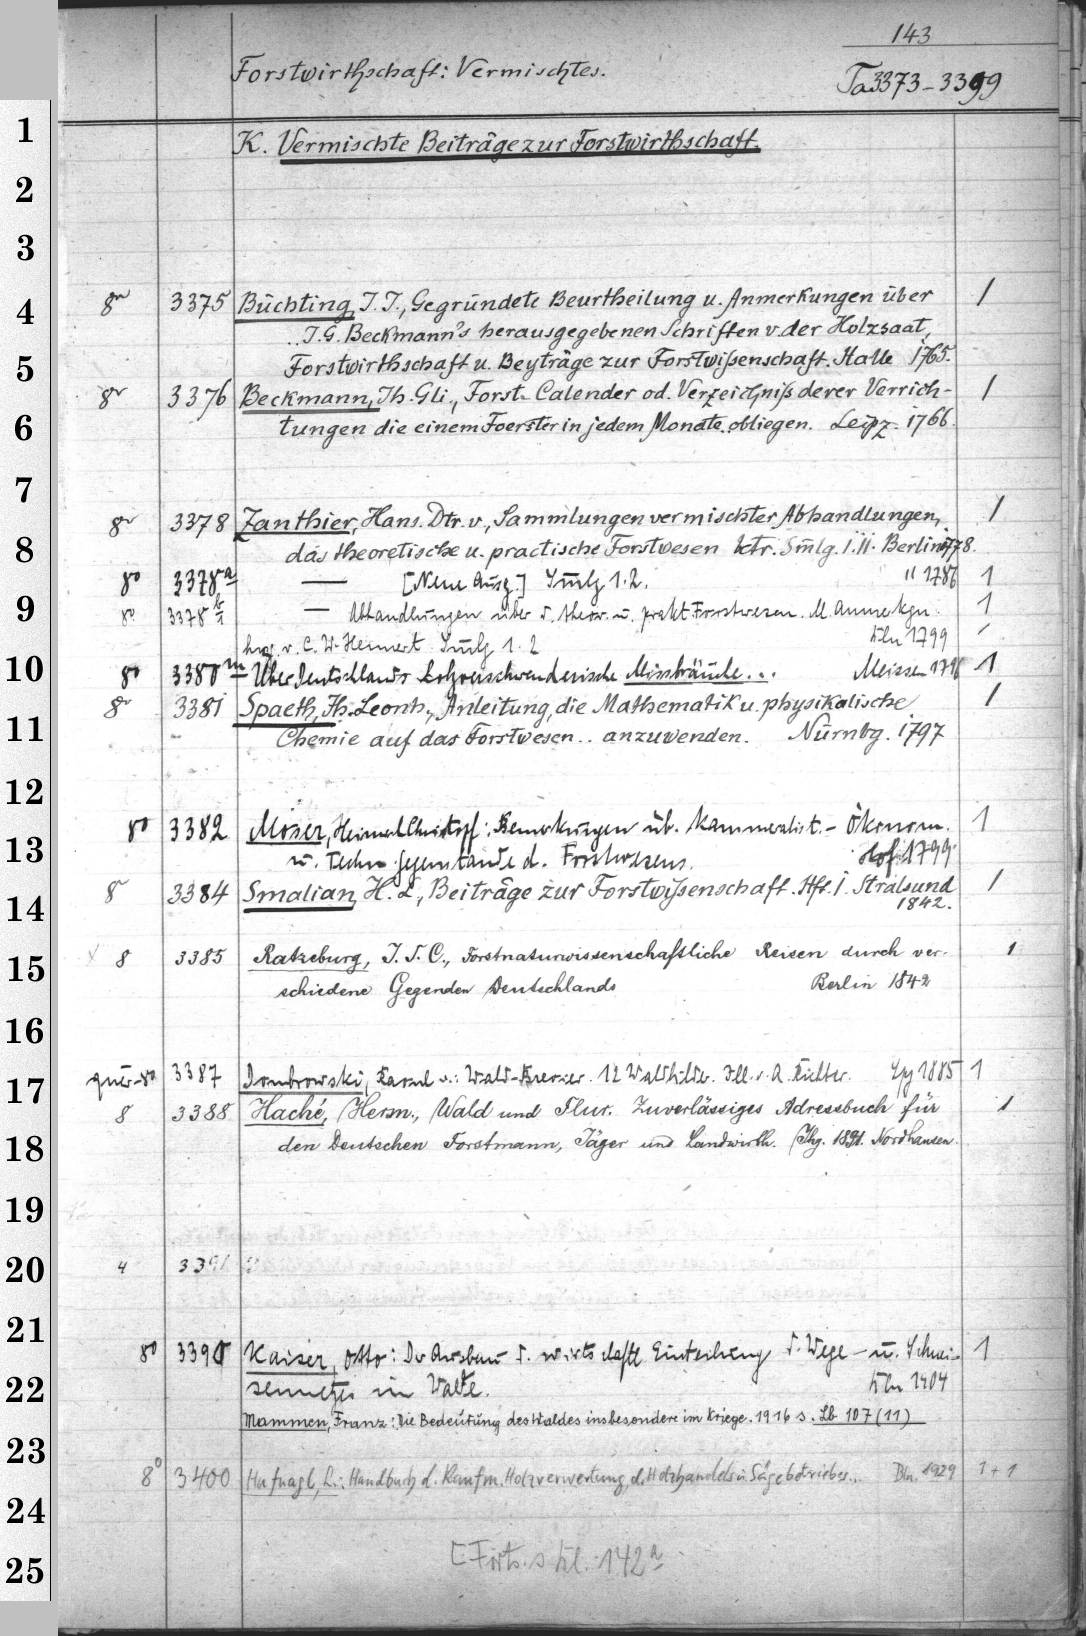 143
Forstwirthschaft: Vermischtes.
Ta 3373-3399
1
K. Vermischte Beiträge zur Forstwirthschaft.
2
3
8o 3375 Büchting, J. J., Gegründete Beurtheilung u. Anmerkungen über 1
4
J. G. Beckmann's herausgegebenen Schriften v. der Holzsaat,
5
Forstwirthschaft u. Beyträge zur Forstwißenschaft. Halle 1765.
8o 3376 Beckmann, Jh. Gli., Forst-Calender od. Verzeichniß derer Verrich- 1
6
tungen die einem Foerster in jedem Monate obliegen. Leipz. 1766.
7
8o 3378 Zanthier, Hans. Dtr. v., Sammlungen vermischter Abhandlungen, 1
8
das theoretische u. practische Forstwesen btr. Smlg. I. II. Berlin 1778.
80 3378a — [Neue Ausg.] Smlg 1.2. " 1786 1
9
80 3378b — Abhandlungen über d. theor. u. prakt Forstwesen. M. Anmerkgn. 1
hrsg. v. C. W. Hennert Smlg 1. 2 Bln 1799
10
80 3380m Über Deutschlands holzverschwenderische Missbräuche... Meissen 1798 1
8o 3381 Spaeth, Jh. Leonh., Anleitung, die Mathematik u. physikalische 1
11
Chemie auf das Forstwesen .. anzuwenden. Nürnbg. 1797
12
80 3382 Moser, Heinrich Christoph: Bemerkungen üb. kammeralist.- Ökonom. 1
13
u. Techn. Gegenstände d. Forstwesens. Hof 1799
8o 3384 Smalian H. L., Beiträge zur Forstwißenschaft. Hft. I. Stralsund 1
14
1842.
8 3385 Ratzeburg, J. T. C., Forstnaturwissenschaftliche Reisen durch ver- 1
15
schiedene Gegenden Deutschlands Berlin 1842
16
quer-80 3387 Dombrowski, Raoul v.: Wald-Brevier. 12 Waldbilde. Ill. v. A. Richter. Lpg 1885 1
17
8 3388 Haché, Herm., Wald und Flur. Zuverlässiges Adressbuch für 1
18
den Deutschen Forstmann, Jäger und Landwirth. Jhg. 1891. Nordhausen.
19
4 3391
20
21
80 3390 Kaiser, Otto: Der Ausbau d. wirtschaftl. Einteilung d. Wege- u. Schnei- 1
22
sennetzes im Walde. Bln 1904
Mammen, Franz: Die Bedeutung des Waldes insbesondere im Kriege. 1916 s. Lb 107 (11)
23
80 3400 Hufnagl, L.: Handbuch d. kaufm. Holzverwertung, d. Holzhandels u. Sägebetriebes.. Bln. 1929 1+1
24
[Forts. s Bl. 142a
25